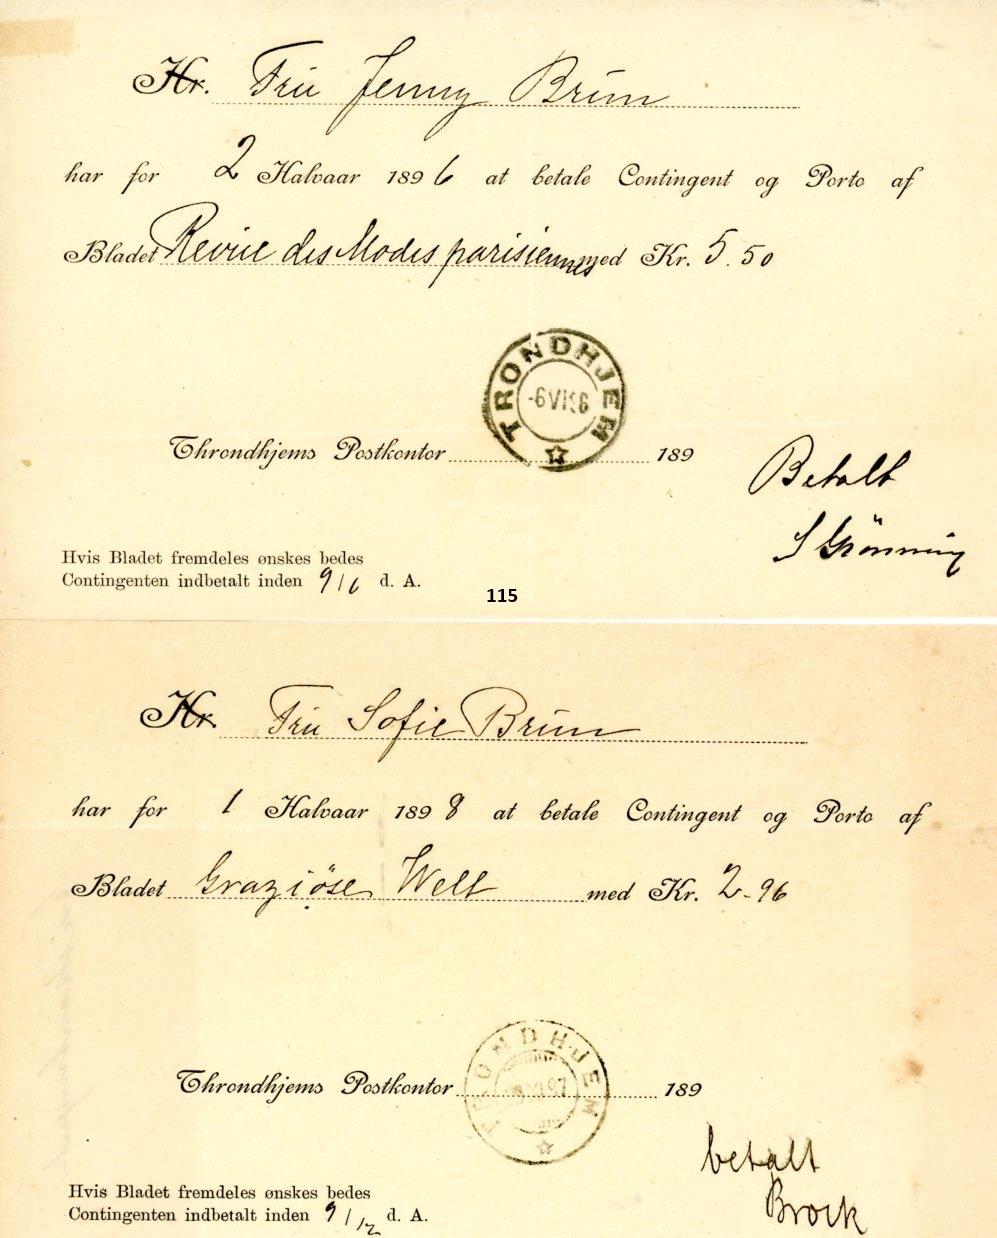 Hr. Fru Jenny Brun
har for 2 Halvaar 1896 at betale Contingent og Porto af
Bladet Revue des Modes parisiennes med Kr. 5.50
TRONDHJEM
-6 VI 96
Throndhjems Postkontor 189
Betalt
S Grönning
Hvis Bladet fremdeles ønskes bedes
Contingenten indbetalt inden 9/6 d. A.
115
Hr. Fru Sofie Brun
har for 1 Halvaar 1898 at betale Contingent og Porto af
Bladet Graziöse Welt med Kr. 2-96
TRONDHJEM
XI 97
Throndhjems Postkontor 189
betalt
Brock
Hvis Bladet fremdeles ønskes bedes
Contingenten indbetalt inden 9/12 d. A.